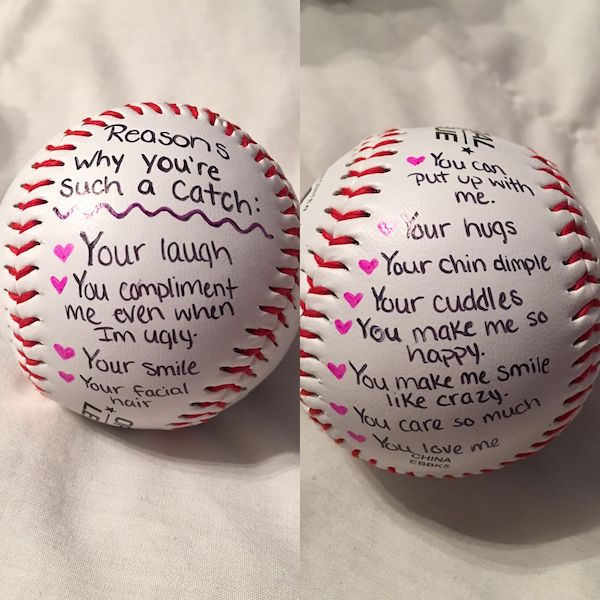 Reasons
why you're
such a Catch:
Your laugh
You compliment
me even when
Im ugly.
Your smile
Your facial
hair
You can
put up with
me.
Your hugs
Your chin dimple
Your cuddles
You make me so
happy.
You make me smile
like crazy.
You care so much
You love me
CHINA
EBBK5